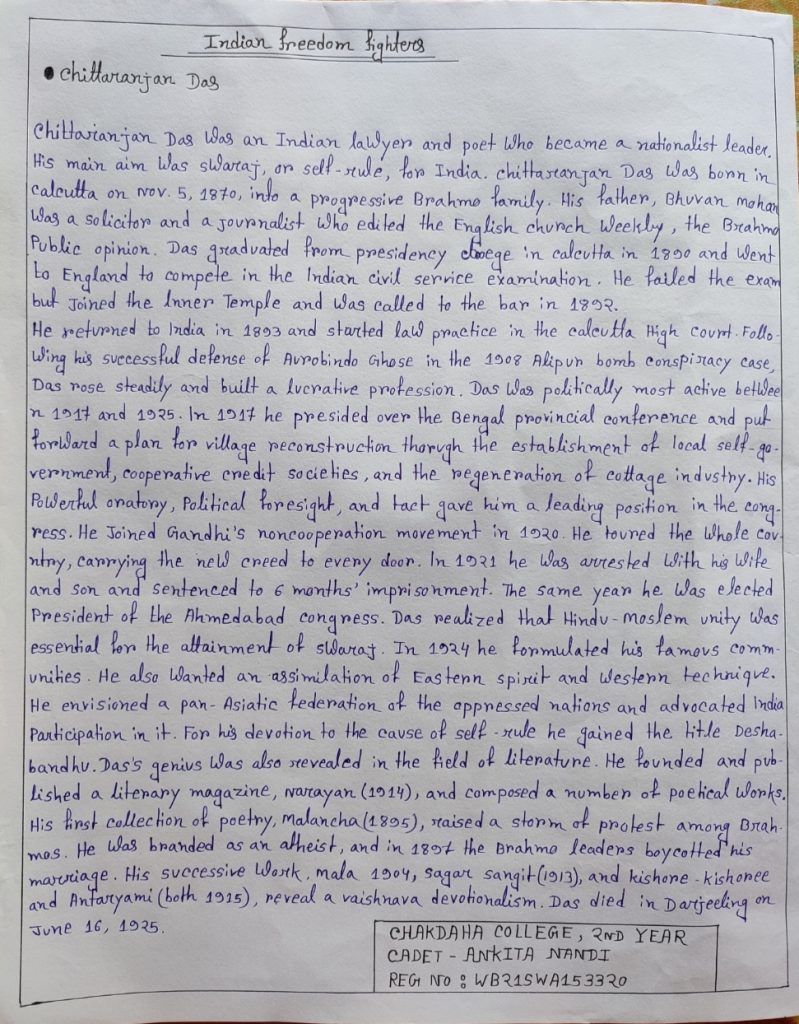 Indian freedom fighters
• Chittaranjan Das
Chittaranjan Das was an Indian lawyer and poet who became a nationalist leader.
His main aim was swaraj, or self-rule, for India. Chittaranjan Das was born in
calcutta on Nov. 5, 1870, into a progressive Brahmo family. His father, Bhuvan mohan
was a solicitor and a journalist who edited the English church weekly, the Brahmo
Public opinion. Das graduated from presidency in calcutta in 1890 and went
to England to compete in the Indian civil service examination. He failed the exam
but Joined the Inner Temple and was called to the bar in 1892.
He returned to India in 1893 and started law practice in the calcutta High court. Follo-
wing his successful defense of Aurobindo Ghose in the 1908 Alipur bomb conspiracy case,
Das rose steadily and built a lucrative profession. Das was politically most active betwee
n 1917 and 1925. In 1917 he presided over the Bengal provincial conference and put
forward a plan for village reconstruction thorugh the establishment of local self-go-
vernment, cooperative credit societies, and the regeneration of cottage industry. His
Powerful oratory, Political foresight, and tact gave him a leading position in the cong-
ress. He Joined Gandhi's noncooperation movement in 1920. He toured the whole cou-
ntry, carrying the new creed to every door. In 1921 he was arrested with his wife
and son and sentenced to 6 months' imprisonment. The same year he was elected
President of the Ahmedabad congress. Das realized that Hindu-Moslem unity was
essential for the attainment of swaraj. In 1924 he formulated his famous comm-
unities. He also wanted an assimilation of Eastern spirit and western technique.
He envisioned a pan-Asiatic federation of the oppressed nations and advocated India
Participation in it. For his devotion to the cause of self-rule he gained the title Desha-
bandhu. Das's genius was also revealed in the field of literature. He founded and pub-
lished a literary magazine, Narayan (1914), and composed a number of poetical works.
His first collection of poetry, Malancha (1895), raised a storm of protest among Brah-
mos. He was branded as an atheist, and in 1897 the Brahmo leaders boycotted his
marriage. His successive work, mala 1904, sagar sangit (1913), and kishore-kishoree
and Antaryami (both 1915), reveal a vaishnava devotionalism. Das died in Darjeeling on
June 16, 1925.
CHAKDAHA COLLEGE, 2ND YEAR
CADET - ANKITA NANDI
REG NO : WB21SWA153320